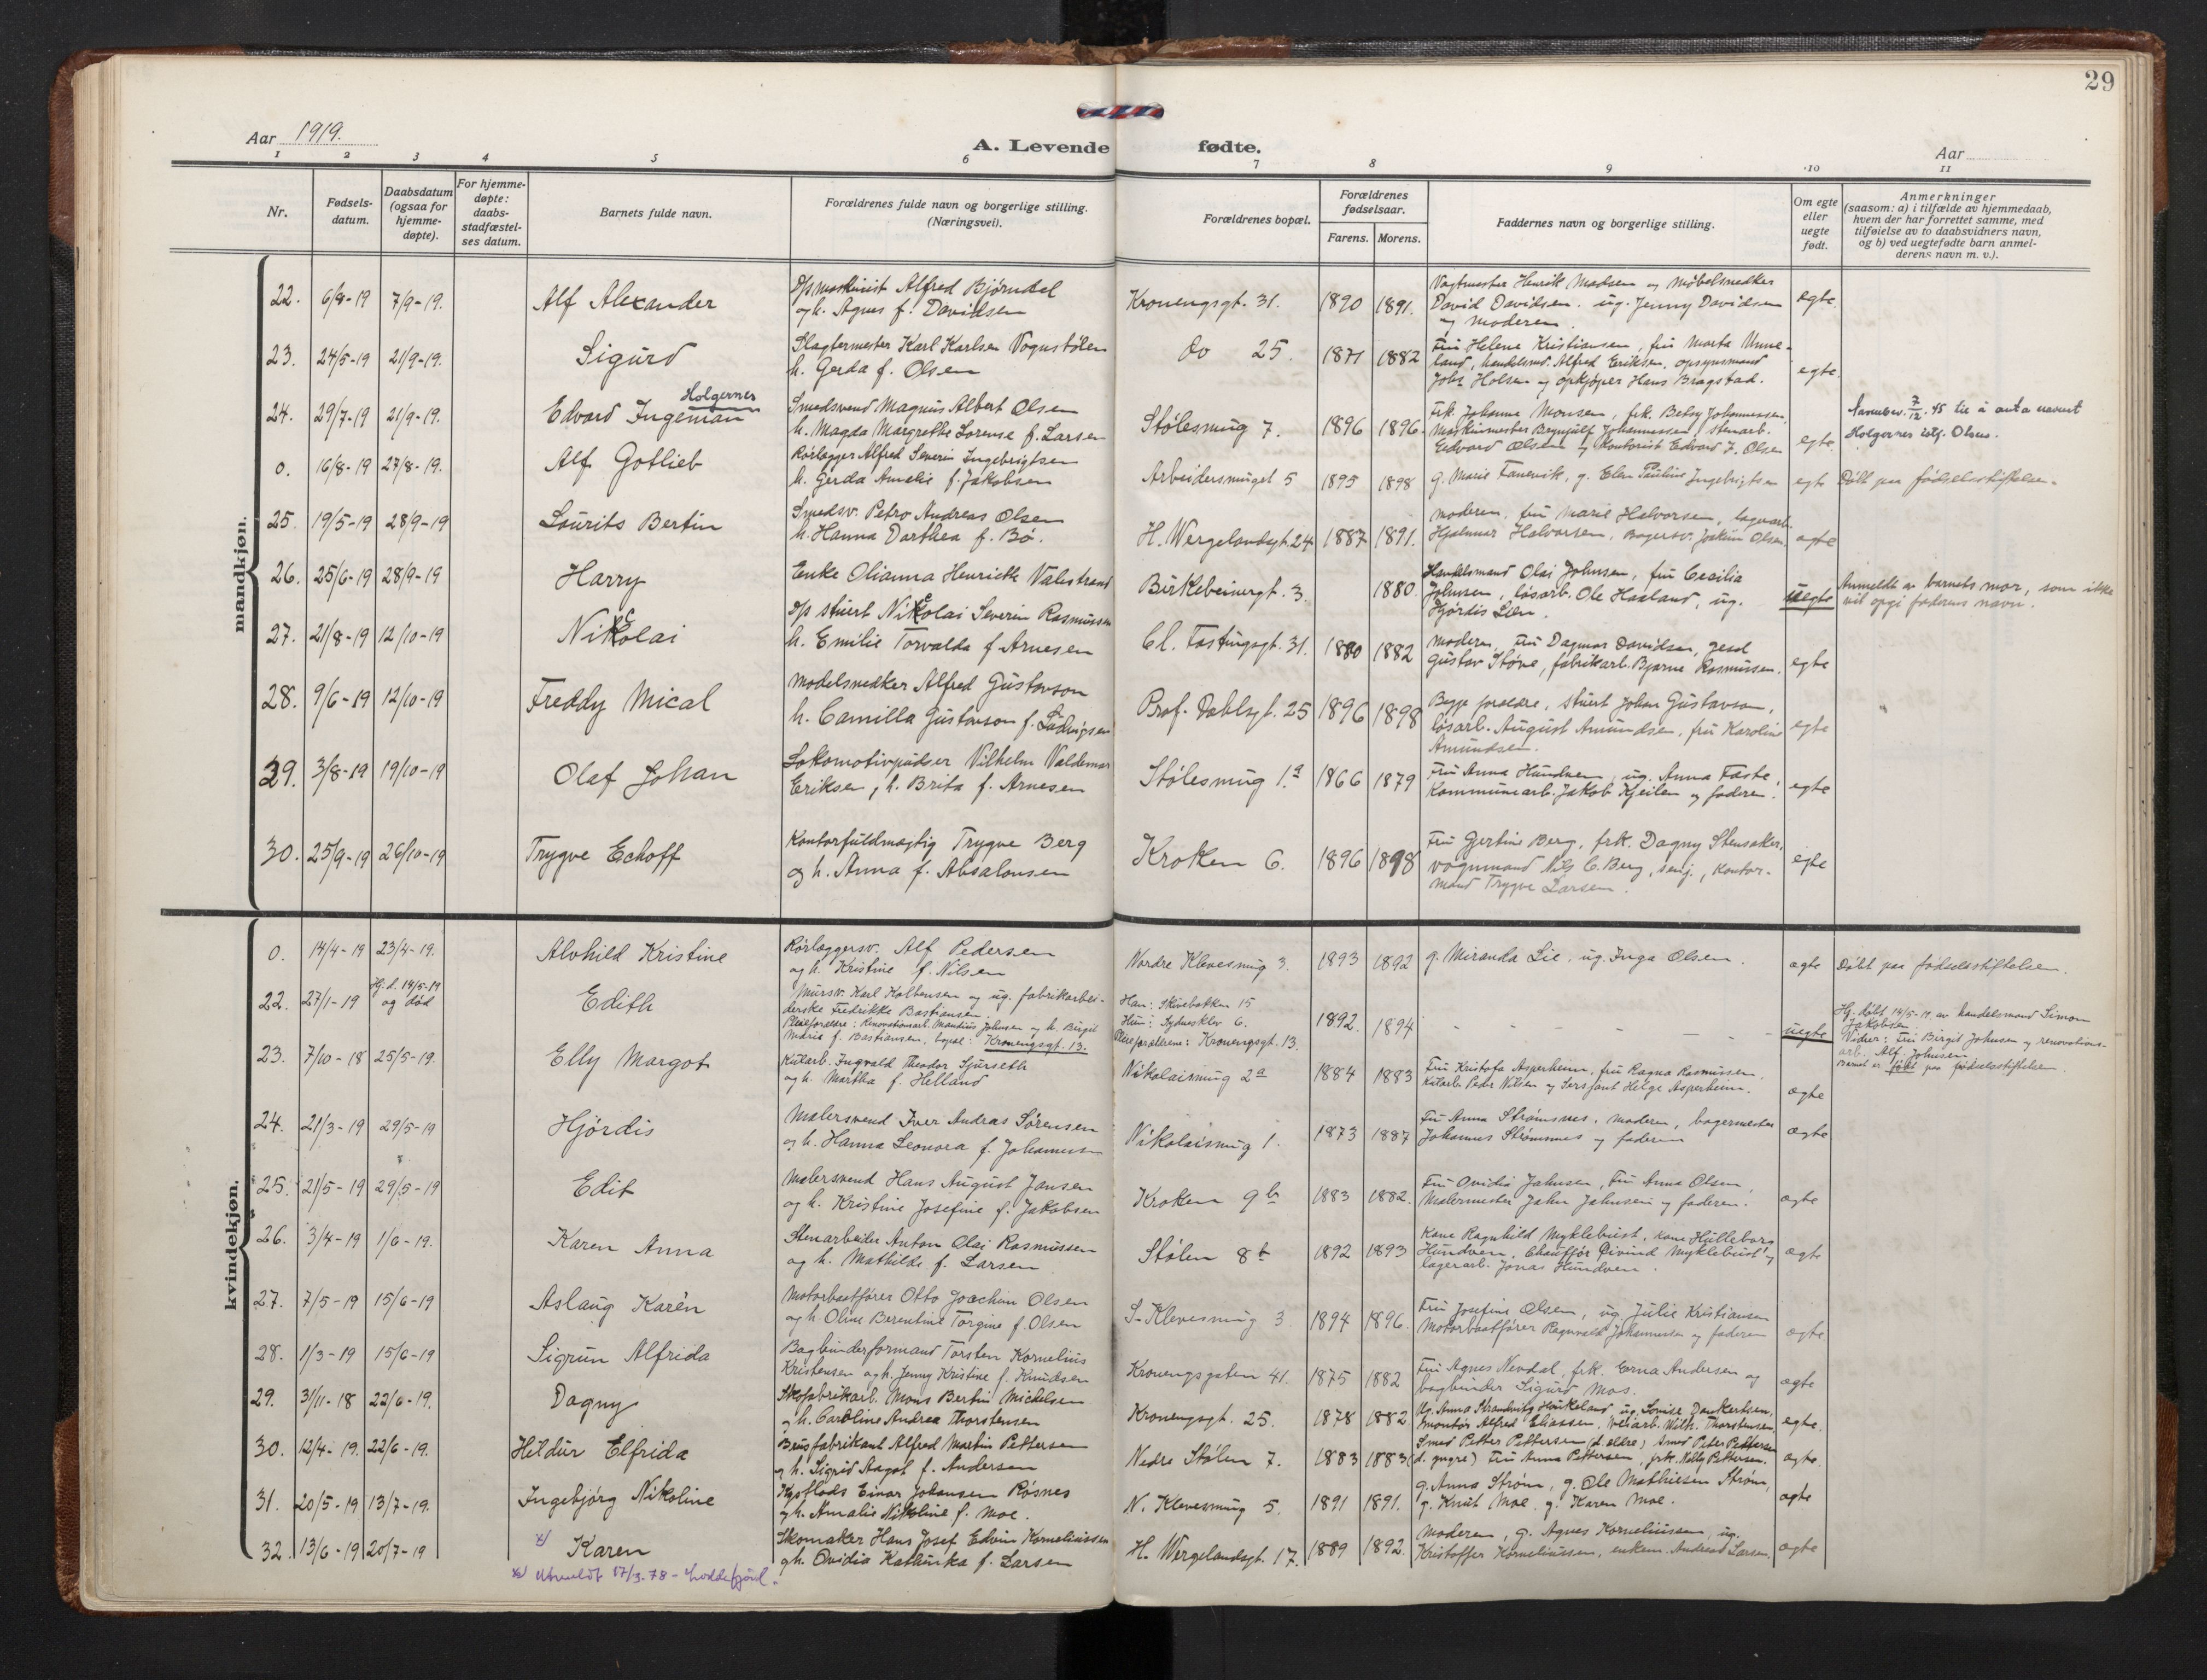 29
Aar 1919.
A. Levende fødte.
Aar
1 2 3 4 5 6 7 8 9 10 11
Nr.
Fødsels-
datum.
Daabsdatum
(ogsaa for
hjemme-
døpte).
For hjemme-
døpte:
daabs-
stadfæstel-
ses datum.
Barnets fulde navn.
Forældrenes fulde navn og borgerlige stilling.
(Næringsvei).
Forældrenes bopæl.
Forældrenes
fødselsaar.
Farens. Morens.
Faddernes navn og borgerlige stilling.
Om egte
eller
uegte
født.
Anmerkninger
(saasom: a) i tilfælde av hjemmedaab,
hvem der har forrettet samme, med
tilføielse av to daabsvidners navn,
og b) ved uegtefødte barn anmel-
derens navn m. v.).
mandkjøn.
22. 6/8-19 7/9-19. Alf Alexander
D/s maskinist Alfred Bjørndal
og h. Agnes f. Davidsen
Kronengsgt. 31. 1890 1891.
Vagtmester Henrik Madsen og møbelsnedker
David Davidsen. ug. Jenny Davidsen
og moderen.
egte.
23. 24/5-19 21/9-19. Sigurd
Slagtermester Karl Karlsen Vognstølen
h. Gerda f. Olsen
do 25. 1871 1882
Fru Helene Kristiansen, fru Marta Unne-
land, handelsmd. Alfred Eriksen, opsynsmand
Johs Holsen og opkjøper Hans Bragstad.
egte.
24. 29/7-19 21/9-19. Edvard Ingeman Holgernes
Smedsvend Magnus Albert Olsen
h. Magda Margrethe Lorense f. Larsen
Stølesmug 7. 1896 1896.
Frk. Johanne Monsen, frk. Betsy Johannessen,
Maskinmester Brynjulf Johannessen, stenarb.
Edvard Olsen og kontorist Edvard J. Olsen
egte
Navnebev. 7/12.45 til å anta navnet
Holgernes istf. Olsen.
0. 16/8-19 27/8-19. Alf Gotlieb
Rørlegger Alfred Severin Ingebrigtsen
h. Gerda Amalie f. Jakobsen
Arbeidersmuget 5 1895 1898
g. Marie Fanevik, g. Elen Pauline Ingebrigtsen
egte
Døbt paa fødselsstiftelsen.
25. 19/5-19 28/9-19 Laurits Bertin
Smedsv. Petro Andreas Olsen
h. Hanna Darthea f. Bø.
H. Wergelandsgt. 24 1887 1891.
moderen, fru Marie Halvorsen, lagerarb.
Hjalmar Halvorsen, Bagersv. Joakim Olsen.
egte
26. 25/6-19 28/9-19 Harry
Enke Olianna Henriette Valestrand
Birkebeinergt. 3. 1880.
Handelsmand Olai Johnsen, fru Cecilia
Johnsen, løsarb. Ole Haaland, ug.
Hjørdis Lien.
uegte
Anmeldt av barnets mor, som ikke
vil opgi faderens navn.
27. 21/8-19 12/10-19 Nikolai
D/s stuert Nikolai Severin Rasmussen
h. Emilie Torvalda f Arnesen
Cl. Fastingsgt. 31. 1880 1882
moderen, fru Dagmar Davidsen, gesel
Gustav Støve, fabrikarb. Bjarne Rasmussen.
egte
28. 9/6-19 12/10-19 Freddy Mical
Modelsnedker Alfred Gustavson
h. Camilla Gustavson f. Ludvigsen
Prof. Dahlsgt. 25 1896 1898
Begge forældre, stuert Johan Gustavson,
løsarb. August Amundsen, fru Karoline
Amundsen.
egte
29. 3/8-19 19/10-19 Olaf Johan
Lokomotivpudser Vilhelm Valdemar
Eriksen, h. Brita f. Arnesen
Stølesmug 1.a 1866 1879
Fru Anna Hundven, ug. Anna Faste,
Kommunearb. Jakob Kjeilen og faderen.
egte
30. 25/9-19 26/10-19 Trygve Echoff
Kontorfuldmægtig Trygve Berg
og h. Anna f. Absalonsen
Kroken 6. 1896 1898
Fru Gjertine Berg, frk. Dagny Stensaker,
vognmand Nils C. Berg, senj., kontor-
mand Trygve Larsen.
egte
kvindekjøn.
0. 14/4-19 23/4-19. Alvhild Kristine
Rørlæggersv. Alf Pedersen
og h. Kristine f. Nilsen
Nordre Klevesmug 3. 1893 1892
g. Miranda Lie, ug. Inga Olsen.
egte
Døbt paa fødselsstiftelsen.
22. 27/1-19 Hj.d. 14/5-19
og død
Edith
Mursv. Karl Kolbensen og ug. fabrikarbei-
derske Fredrikke Bastiansen.
Pleieforældre: Renovationsarb. Mantius Johnsen og h. Birgit
Maria f. Bastiansen, bopæl: Kronengsgt. 13.
Han: Skivebakken 15
Hun: Sydnesklev 6.
Pleieforældrene: Kronengsgt. 13.
1892. 1894
- - - - - -
uegte
Hj. døbt 14/5-19 av handelsmand Simon
Jakobsen.
Vidner: Fru Birgit Johnsen og renovations-
arb. Alf Johnsen.
Barnet er født paa fødselsstiftelsen.
23. 7/10-18 25/5-19. Elly Margot
Kularb. Ingvald Theodor Sjurseth
og h. Martha f. Helland
Nikolaismug 2a 1884 1883
Fru Kristofa Asperheim, fru Ragna Rasmussen,
Kularb. Peder Nilsen og Sersjant Helge Asperheim.
egte
24. 21/3-19 29/5-19 Hjördis
Malersvend Iver Andras Sörensen
og h. Hanna Leonora f. Johannesen
Nikolaismug 1. 1873 1887
Fru Anna Strømsnes, moderen, bagermester
Johannes Strømsnes og faderen
egte
25. 21/5-19 29/5-19 Edit
Malersvend Hans August Jansen
og h. Kristine Josefine f. Jakobsen
Kroken 9b 1883 1882.
Fru Ovidia Jahnsen, Fru Anna Olsen,
Malermester Jahn Jahnsen og faderen.
egte
26. 3/4-19 1/6-19. Karen Anna
Stenarbeider Anton Olai Rasmussen
og h. Mathilde f. Larsen
Stølen 8b 1892 1893
Kone Ragnhild Myklebust, kone Hilleborg
Hundven, Chauffør Eivind Myklebust og
lagerarb. Jonas Hundven.
egte
27. 7/5-19 15/6-19 Aslaug Karén
Motorbaatfører Otto Joachim Olsen
og h. Oline Berentine Torgine f. Olsen
S. Klevesmug 3. 1894 1896.
Fru Josefine Olsen, ug. Julie Kristiansen
Motorbaatfører Ragnvald Johannesen og faderen
egte
28. 1/3-19 15/6-19 Sigrun Alfrida
Bagbinderformand Torsten Kornelius
Kristensen og h. Jenny Kristine f. Knudsen
Kronengsgaten 41. 1875 1882
Fru Agnes Nevdal, frk. Erna Andersen og
bogbinder Sigurd Mos.
egte
29. 31/11-18 22/6-19. Dagny
Skofabrikarb. Mons Bertin Mickelsen
og h. Caroline Andrea Thorstensen
Kronengsgt. 25. 1878 1882
Ug. Anna Strandvitz Haukeland, ug. Lovise Dankertsen,
montør Alfred Eliassen, veiarb. Nills. Thorstensen
egte.
30. 12/4-19. 22/6-19. Hildur Elfrida
Brusfabrikant Alfred Martin Pettersen
og h. Sigrid Aagot f. Andersen
Nedre Stølen 7. 1883 1883
Smed Petter Pettersen (d. eldre) Smed Peter Pettersen
(d. yngre) Fru Anna Pettersen, frk. Nelly Pettersen.
egte.
31. 20/5-19 13/7-19. Ingebjörg Nikoline
Kystlods Einar Johansen Røsnes
og h. Amalie Nikoline f. Moe.
N. Klevesmug 5. 1891 1891.
g. Anna Strøm, g. Ole Mathiesen Strøm,
g. Knut Moe, g. Karen Moe.
egte
32. 13/6-19 20/7-19 x/ Karen
Skomaker Hans Josef Edvin Korneliussen
og h. Ovidia Kathinka f. Larsen
H. Wergelandsgt. 17. 1889 1892.
Moderen, g. Agnes Korneliussen, ug.
Kristoffer Korneliussen, enkem. Andreas Larsen.
egte
x/ Utmeldt 17/3-78 - Loddefjord.